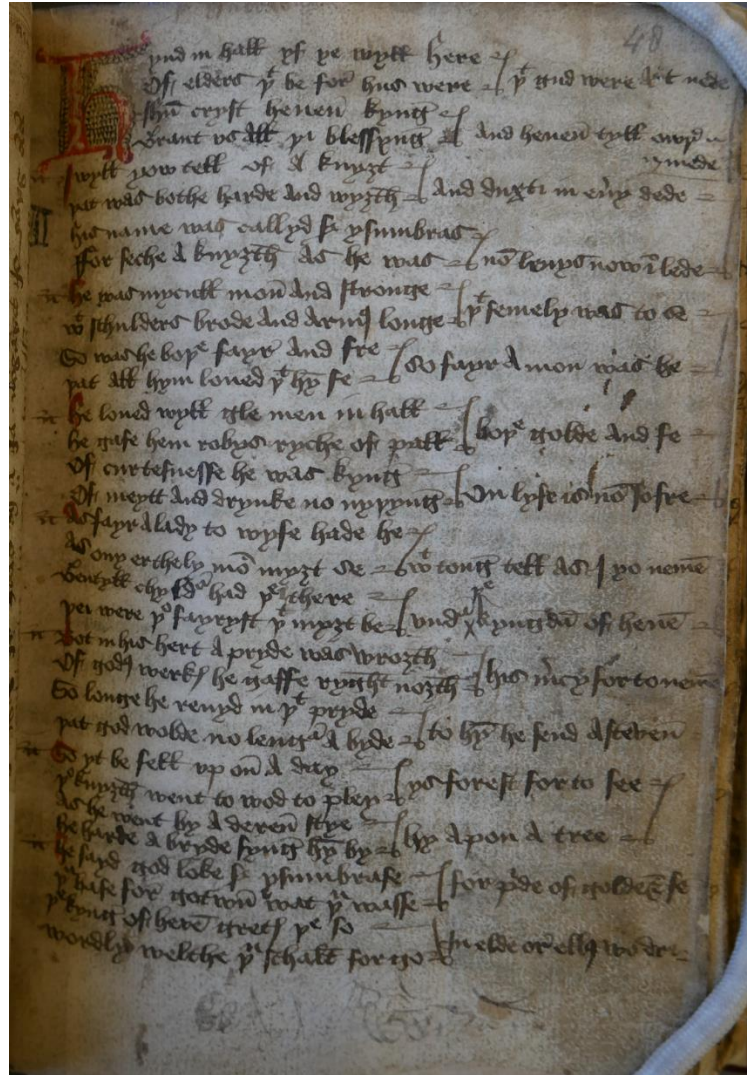 48
Hynd in hall yf ye wyll here
Of elders þt be for hus were þt gud were At nede
Jhu cryst heuen kyng
Grant vs All þi blessyng And heuen tyll owr
mede
I wyll yow tell of A knyzt
þat was bothe harde And wyzth And duzti in euy dede
his name was callyd sir ysumbras
ffor seche A knyzth As he was nō leuys now ī lede
he was mycull mon And stronge
wt schulders brode And Armus longe þt semely was to se
So was he boþe fayr And fre so fayr A mon was he
þat All hym loued þt hȳ se
he loued wyll gle men in hall
he gafe hem robys ryche of pall boþe golde And fe
Of curtesnesse he was kyng
Of meytt And drynke no nyþyng On lyfe is nō so fre
As fayr A lady to wyfe hade he
As ony erthely mō myzt se wt tong tell As I yo nemē
Gentyll chyldur had þei there
þei were þe fayryst þt myzt be vndur þe kyngdū of heuē
Bot in his hert A pryde was wrozth
Of godus werkus he gaffe ryght nozth his mcy for to neuē
So longe he renyd in þt pryde
þat god wolde no lengur A byde to hȳ he send A steuen
So yt be fell vp on A day
þe knyzth went to wod to pley ys forest for to see
As he went by A deren stye
he harde A bryde syng hȳ by hy Apon A tree
he sayd god loke sir ysumbrase for pde of golde & fe
þu hase for gotun wat þu wasse
þe kyng of heuē gretus þe so
wordly welthe þu schall for go In elde or ellus